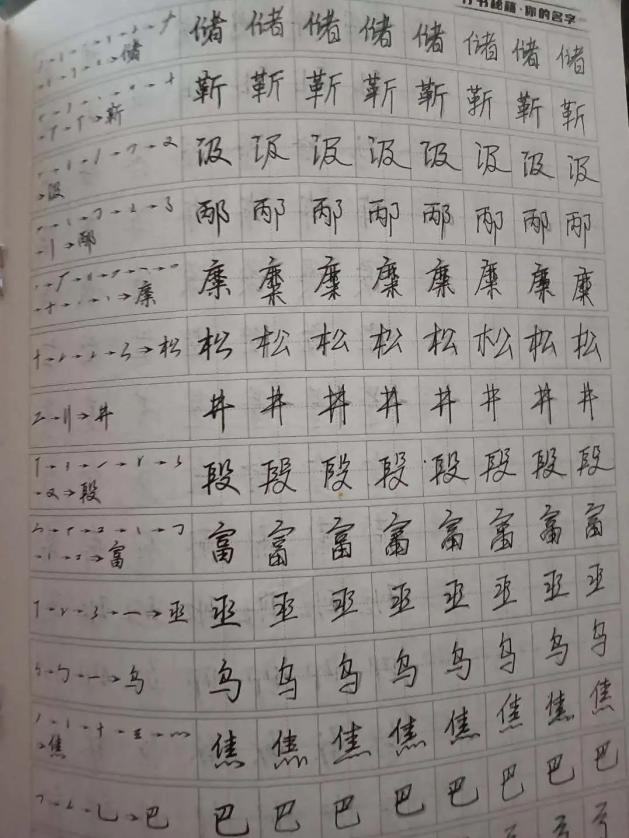 行书秘籍·你的名字
→储 储 储 储 储 储 储 储 储
→靳 靳 靳 靳 靳 靳 靳 靳 靳
→汲 汲 汲 汲 汲 汲 汲 汲 汲
→邴 邴 邴 邴 邴 邴 邴 邴 邴
→糜 糜 糜 糜 糜 糜 糜 糜 糜
→松 松 松 松 松 松 松 松 松
→井 井 井 井 井 井 井 井 井
→段 段 段 段 段 段 段 段 段
→富 富 富 富 富 富 富 富 富
→巫 巫 巫 巫 巫 巫 巫 巫 巫
→乌 乌 乌 乌 乌 乌 乌 乌 乌
→焦 焦 焦 焦 焦 焦 焦 焦 焦
→巴 巴 巴 巴 巴 巴 巴 巴 巴